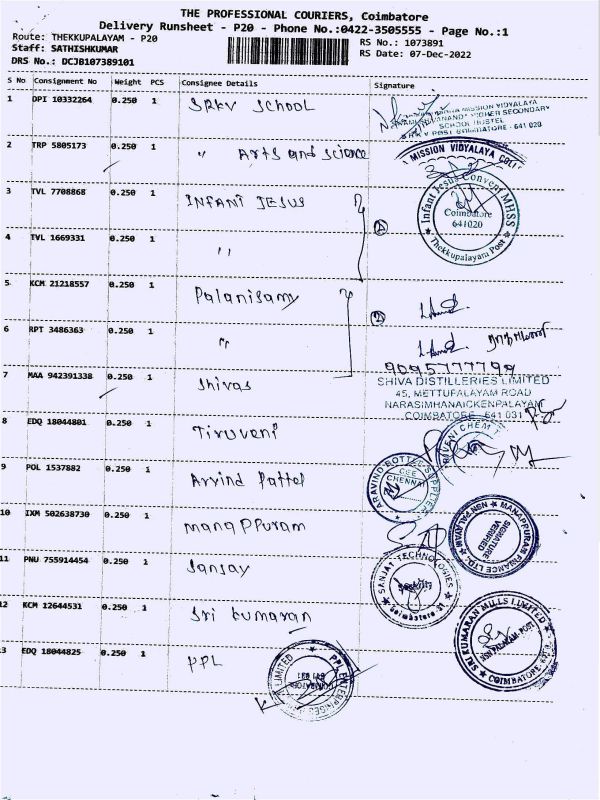 THE PROFESSIONAL COURIERS, Coimbatore
Delivery Runsheet - P20 - Phone No.:0422-3505555 - Page No.:1
Route: THEKKUPALAYAM - P20
RS No.: 1073891
Staff: SATHISHKUMAR
RS Date: 07-Dec-2022
DRS No.: DCJB107389101
S No Consignment No Weight PCS Consignee Details Signature
1 DPI 10332264 0.250 1 SRKV School
MISSION VIDYALAYA
HIGHER SECONDARY
SCHOOL HOSTEL
S R K V POST COIMBATORE - 641 020
2 TRP 5805173 0.250 1 " Arts and science
MISSION VIDYALAYA
3 TVL 7708868 0.250 1 INFANT JESUS
Infant Jesus Convent MHSS
Coimbatore
641020
Thekkupalayam Post
4 TVL 1669331 0.250 1 "
5 KCM 21218557 0.250 1 Palanisamy
6 RPT 3486363 0.250 1 "
9095777799
7 MAA 942391338 0.250 1 Shivas
SHIVA DISTILLERIES LIMITED
45, METTUPALAYAM ROAD
NARASIMHANAICKENPALAYAM
COIMBATORE - 641 031
8 EDQ 18044801 0.250 1 Tiruveni
9 POL 1537882 0.250 1 Arvind Pattel
CHENNAI
10 IXM 502638730 0.250 1 manappuram
MANAPPURAM FINANCE LTD.
SIGNATURE
VERIFIED
11 PNU 755914454 0.250 1 Sanjay
SANJAY TECHNOLOGIES
Coimbatore
12 KCM 12644531 0.250 1 Sri kumaran
SRI KUMARAN MILLS LIMITED
NSN PALAYAM POST
COIMBATORE
13 EDQ 18044825 0.250 1 PPL
PPL ENTERPRISES LIMITED